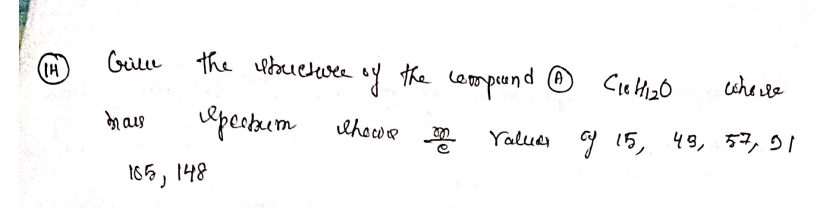 (14) Give the structure of the compound (A) C10H12O whose
mass spectrum shows m/e values of 15, 43, 57, 91
105, 148